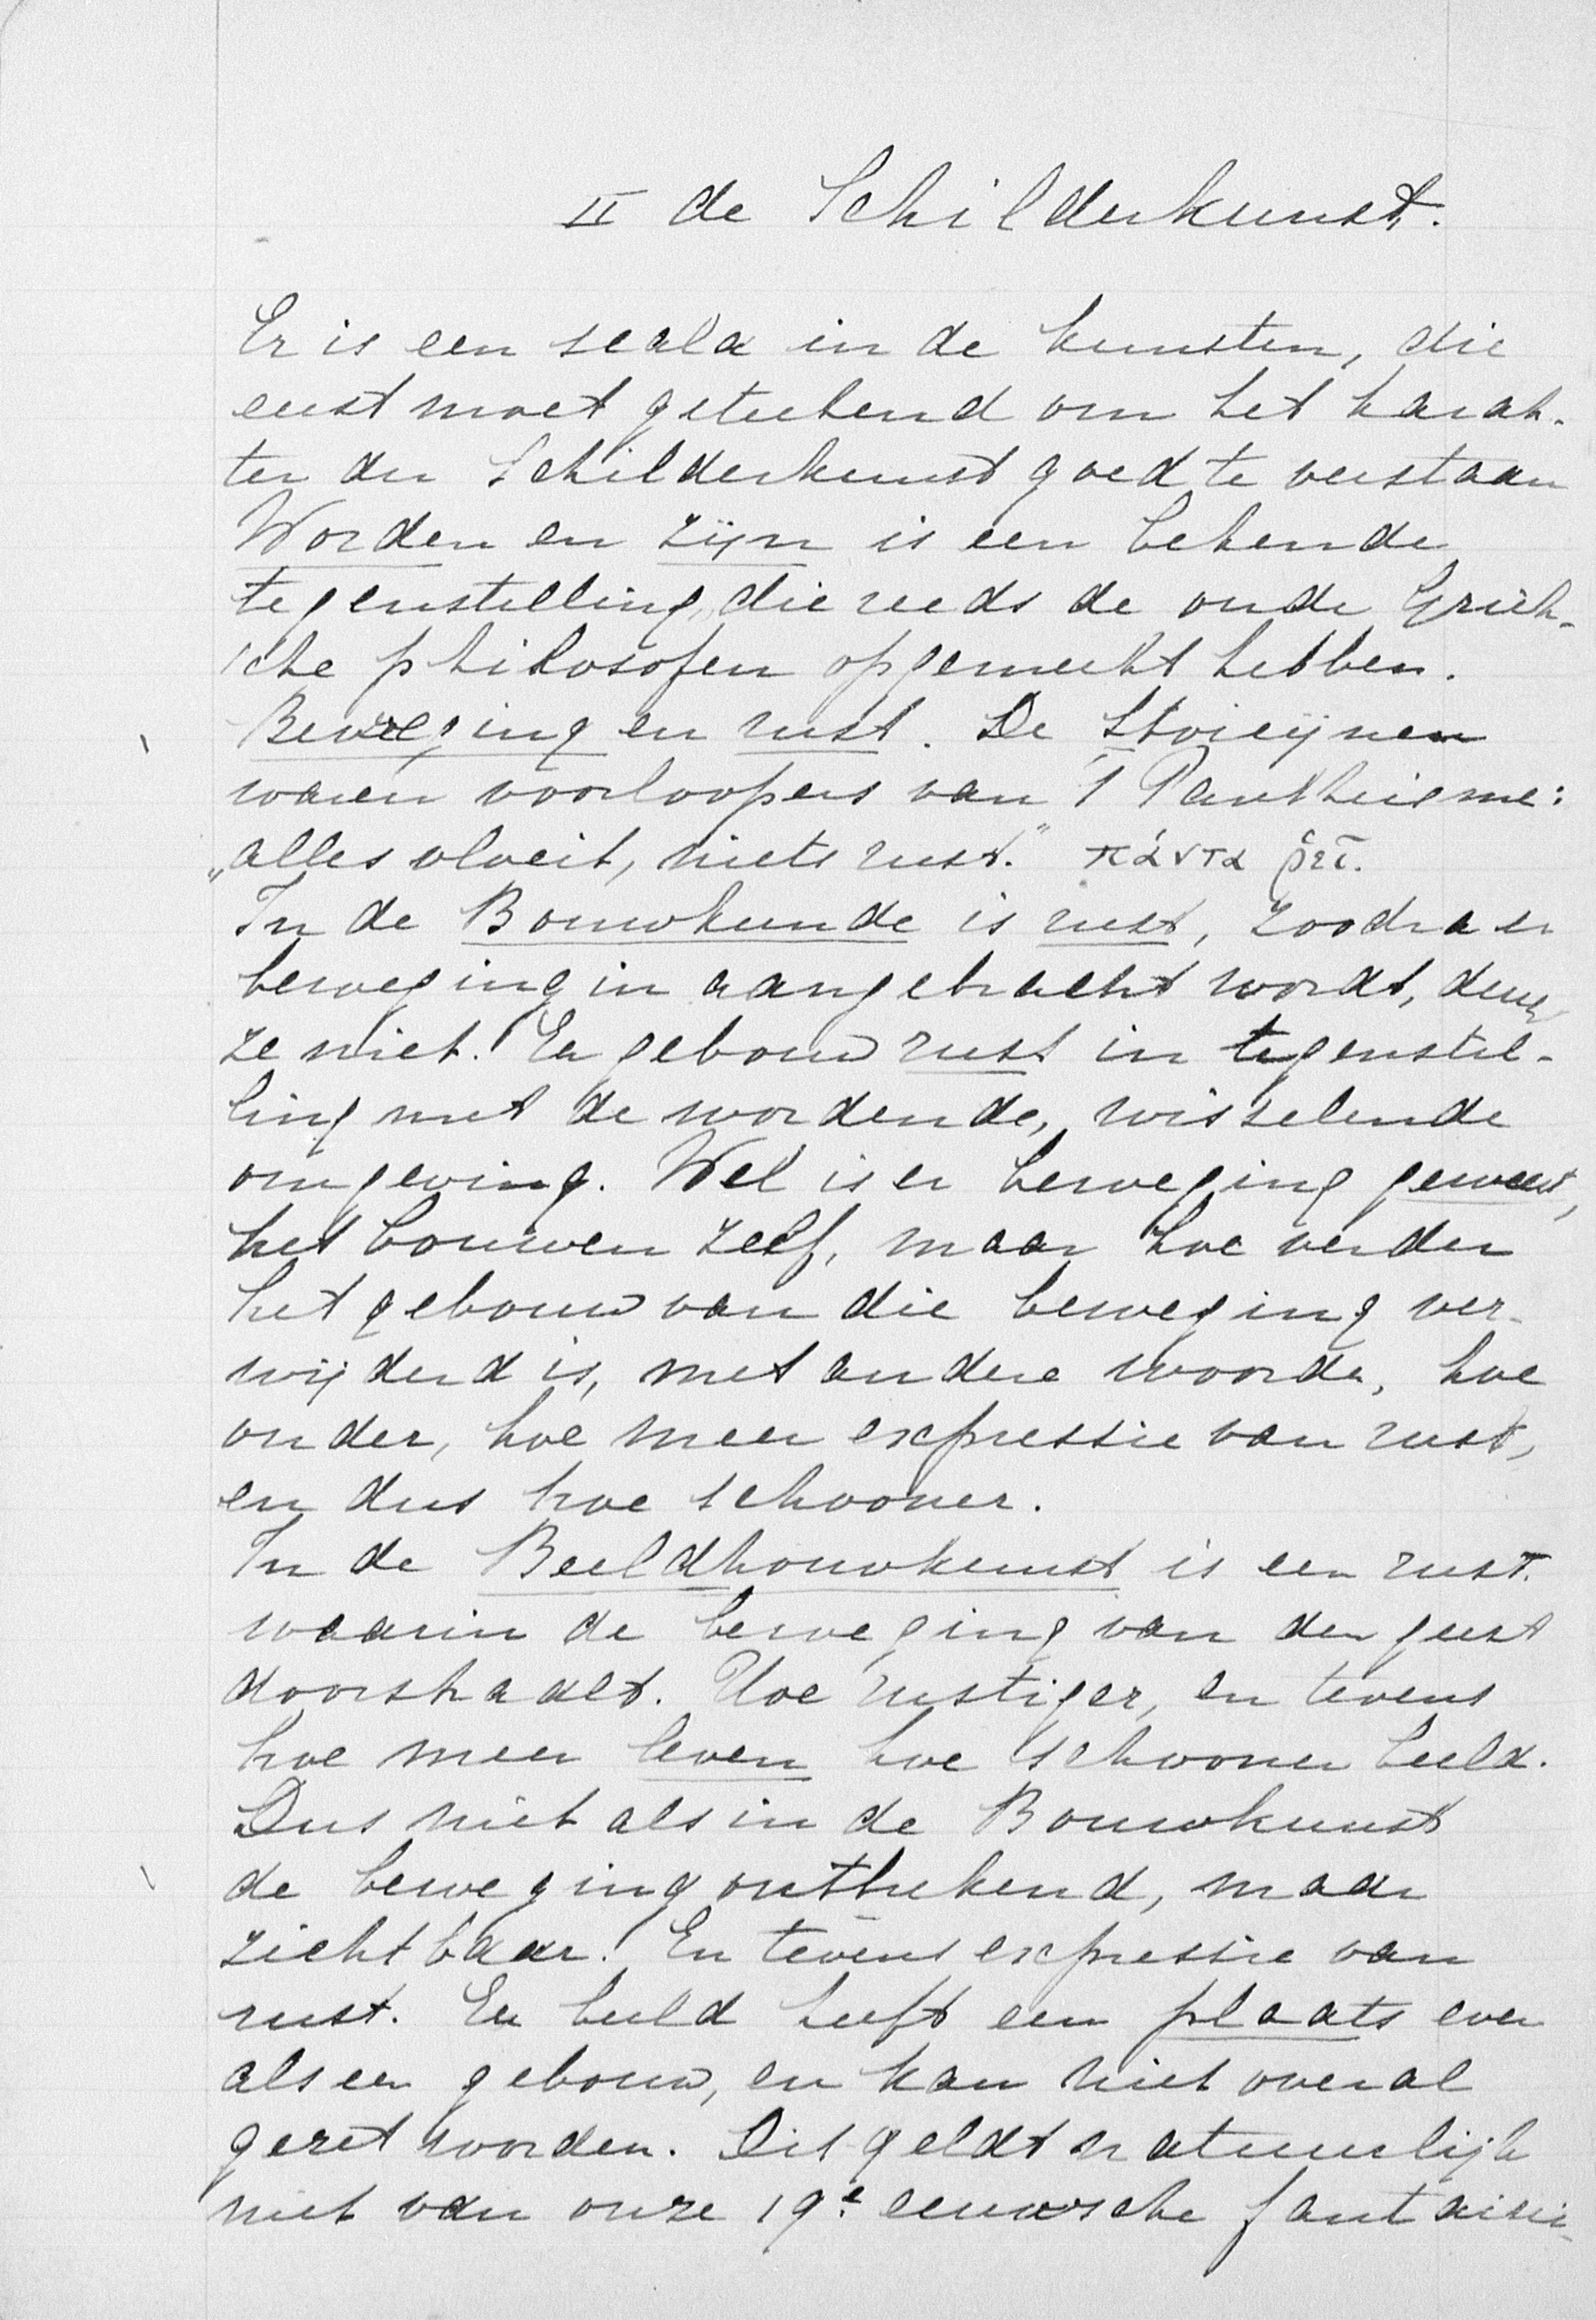 II de Schilderkunst.
Er is een scala in de kunsten, die
eerst moet geteekend om het karak-
ter der Schilderkunst goed te verstaan
Worden en zijn is een bekende
tegenstelling, die reeds de oude Griek-
sche philosofen opgemerkt hebben.
Beweging en rust. De Stoicijnen
waren voorloopers van 't Pantheisme:
„alles vloeit, niets rust." πάντα ῥεῖ.
In de Bouwkunde is rust, zoodra er
beweging in aangebracht wordt, deugt
ze niet. Een gebouw rust in tegenstel-
ling met de wordende, wisselende
omgeving. Wel is er beweging geweest,
het bouwen zelf, maar hoe verder
het gebouw van die beweging ver-
wijderd is, met andere woorden, hoe
ouder, hoe meer expressie van rust,
en dus hoe schooner.
In de Beeldhouwkunst is een rust.
waarin de beweging van den geest
doorstraalt. Hoe rustiger, en tevens
hoe meer leven hoe schooner beeld.
Dus niet als in de Bouwkunst
de beweging ontbrekend, maar
zichtbaar. En tevens expressie van
rust. Een beeld heeft een plaats even
als een gebouw, en kan niet overal
gezet worden. Dit geldt natuurlijk
niet van onze 19e eeuwsche fantaisie-